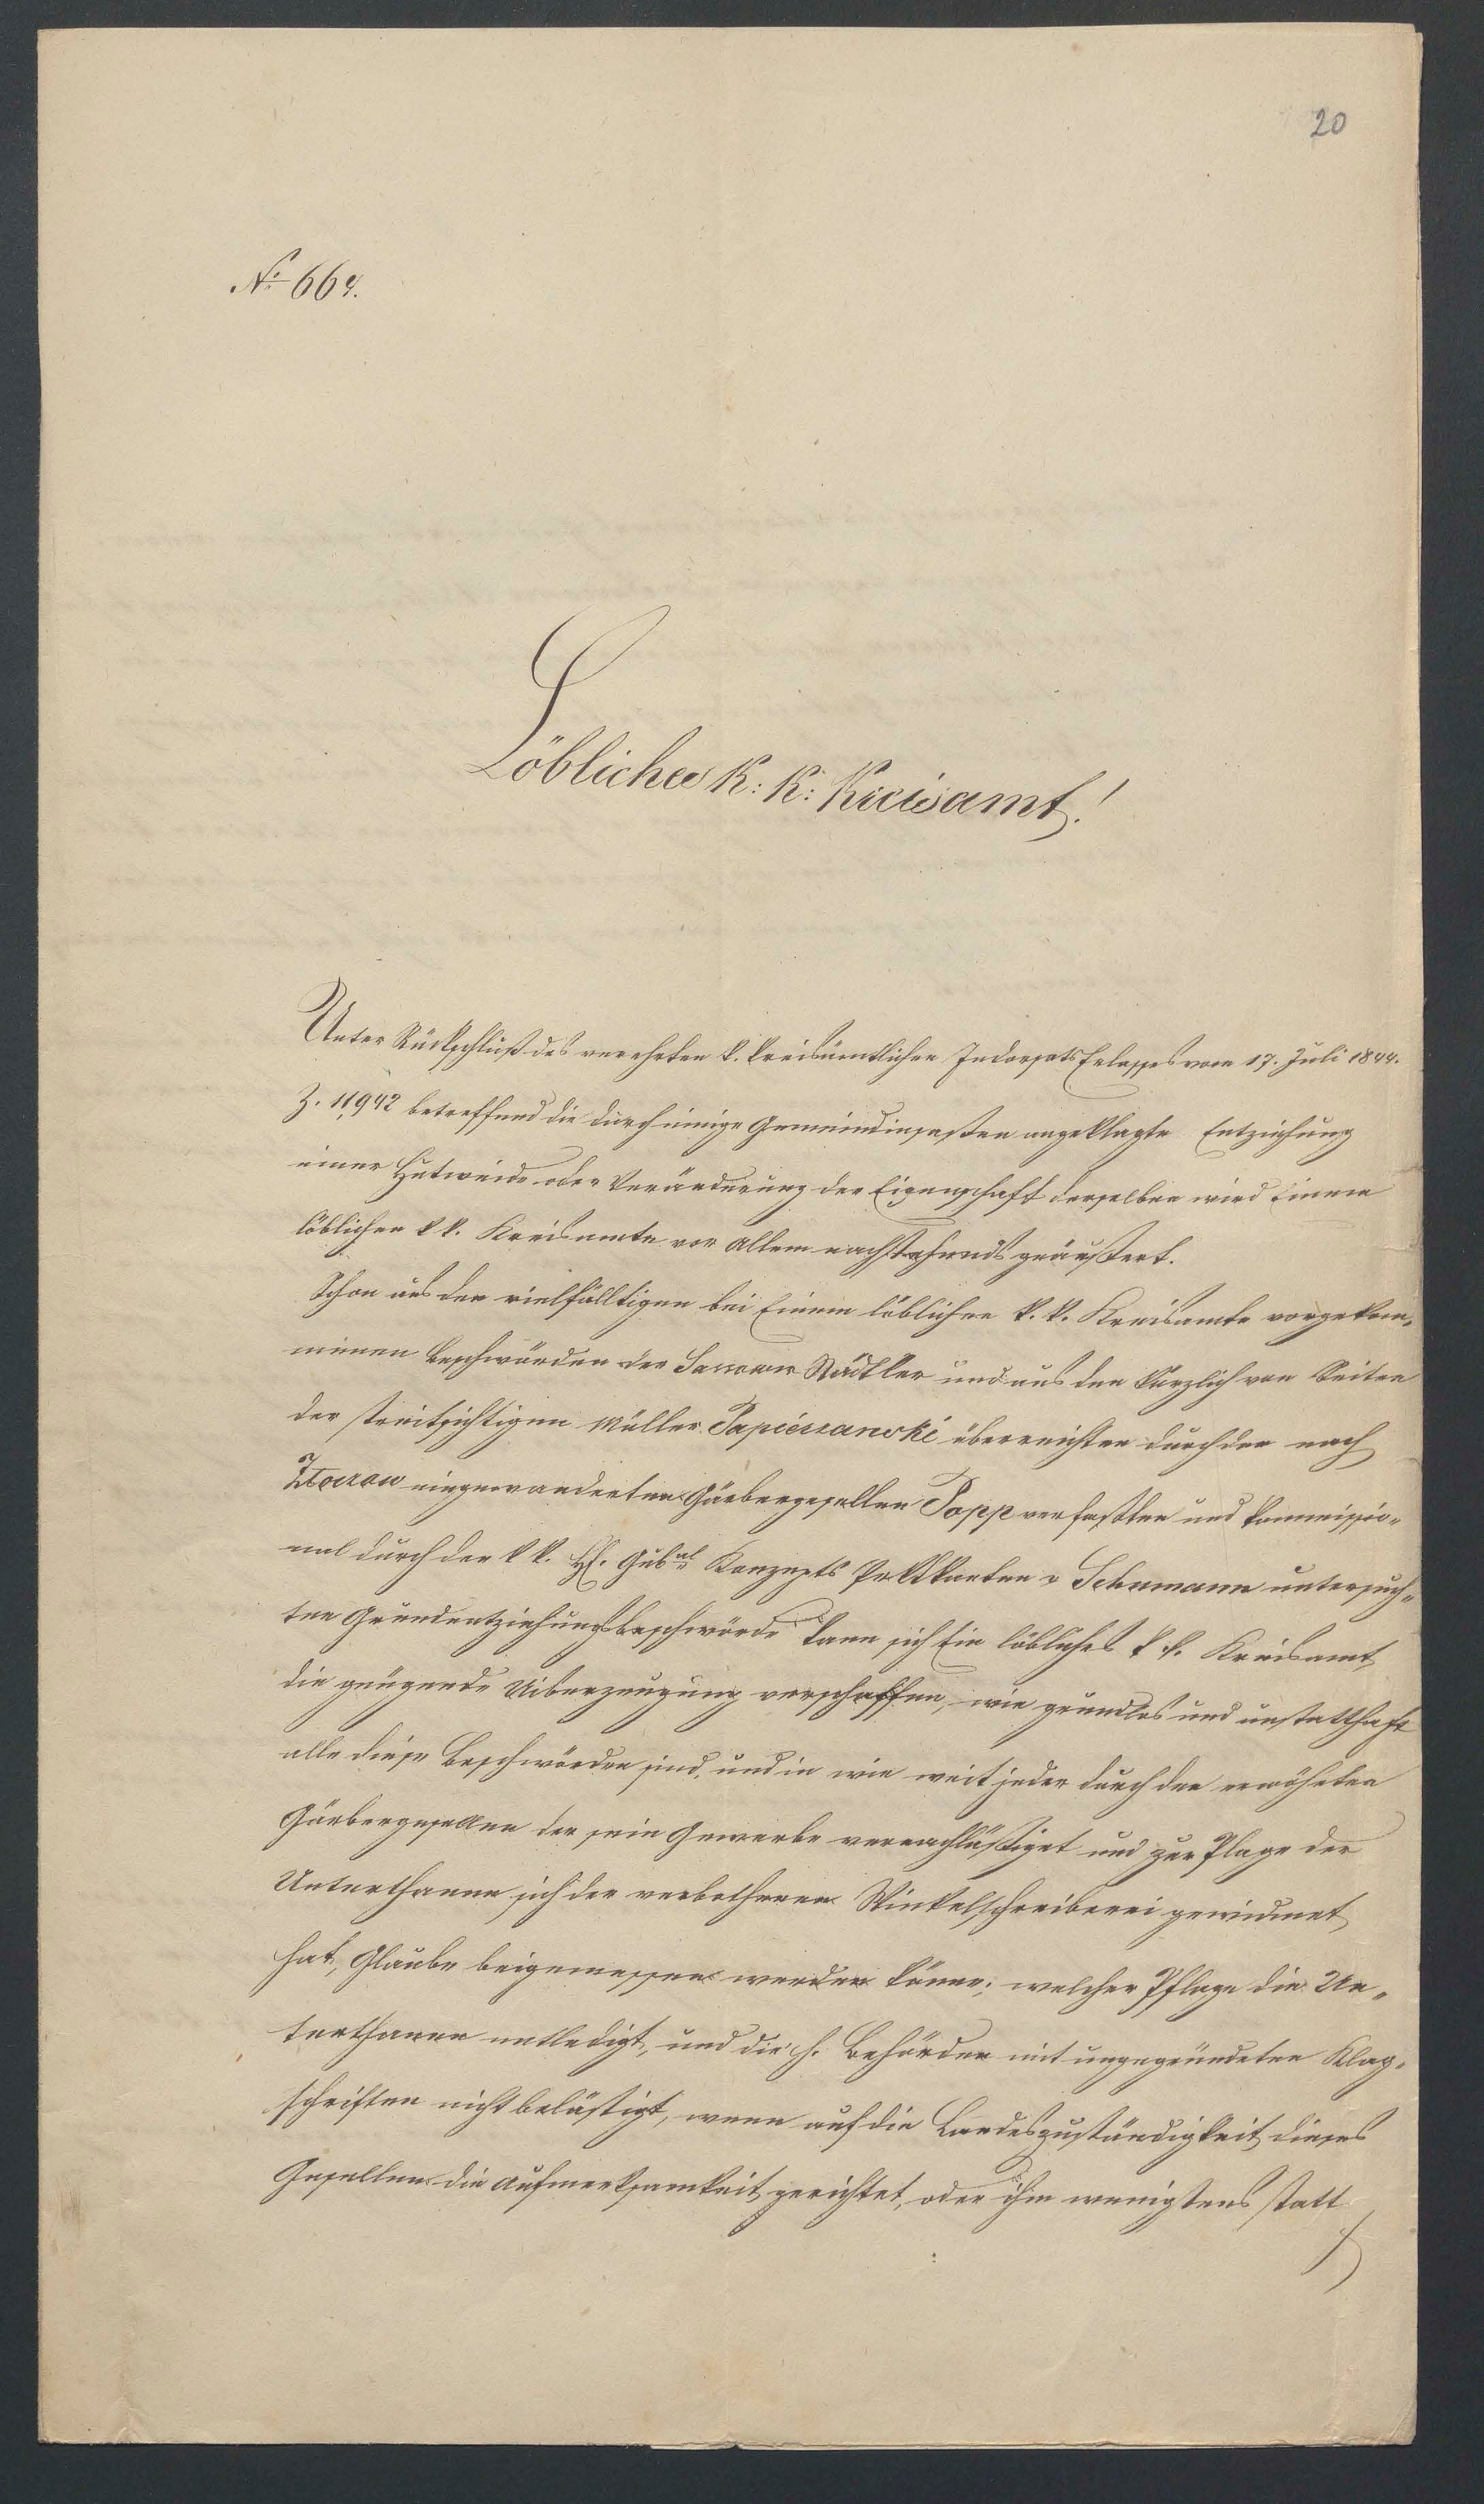 20
No 664.
Löbliches K: K: Kreisamt!
Unter Rückschluß des verehrten k. kreisämtlichen Indorsats Erlasses vom 17. Juli 1844.
Z. 11942 betreffend die durch einige Gemeindinsaßen angeklagte Entziehung
einer Hutweide oder Veränderung der Eigenschaft derselben wird Einem
löblichen k k. Kreisamte vor allem nachstehends geäußert.
Schon aus den vielfälltigen bei Einem löblichen k. k. Kreisamte vorgekom„
menen Beschwörden der Sassower Städtler und aus den kürzlich von Seiten
der streitsichtigen Müller Papieszanski überreichten durch den nach
Złoczow eingewanderten Gärbergesellen Popp verfaßten und kommissio„
nal durch den k k. H. Gubal Konzepts Praktikanten v Schumann untersuch„
ten Grundentziehungsbeschwörde kann sich Ein löbliches k k. Kreisamt
die genügende Uiberzeugung verschaffen, wie grundlos und unstatthaft
alle diese Beschwörden sind, und in wie weit jeder durch den erwöhnten
Gärbergesellen der sein Gewerbe vernachläßiget und zur Plage der
Unterthanen sich der verbothenen Winkelschreiberei gewidmet
hat, Glaube beigemessen werden könne; welcher Pflage die Un„
terthanen entledigt, und die h. Behörden mit ungegründeten Klag„
schriften nicht belästigt, wenn auf die Landeszuständigkeit dieses
Gesellen die Aufmerksamkeit gerichtet, oder ihm wenigstens statt